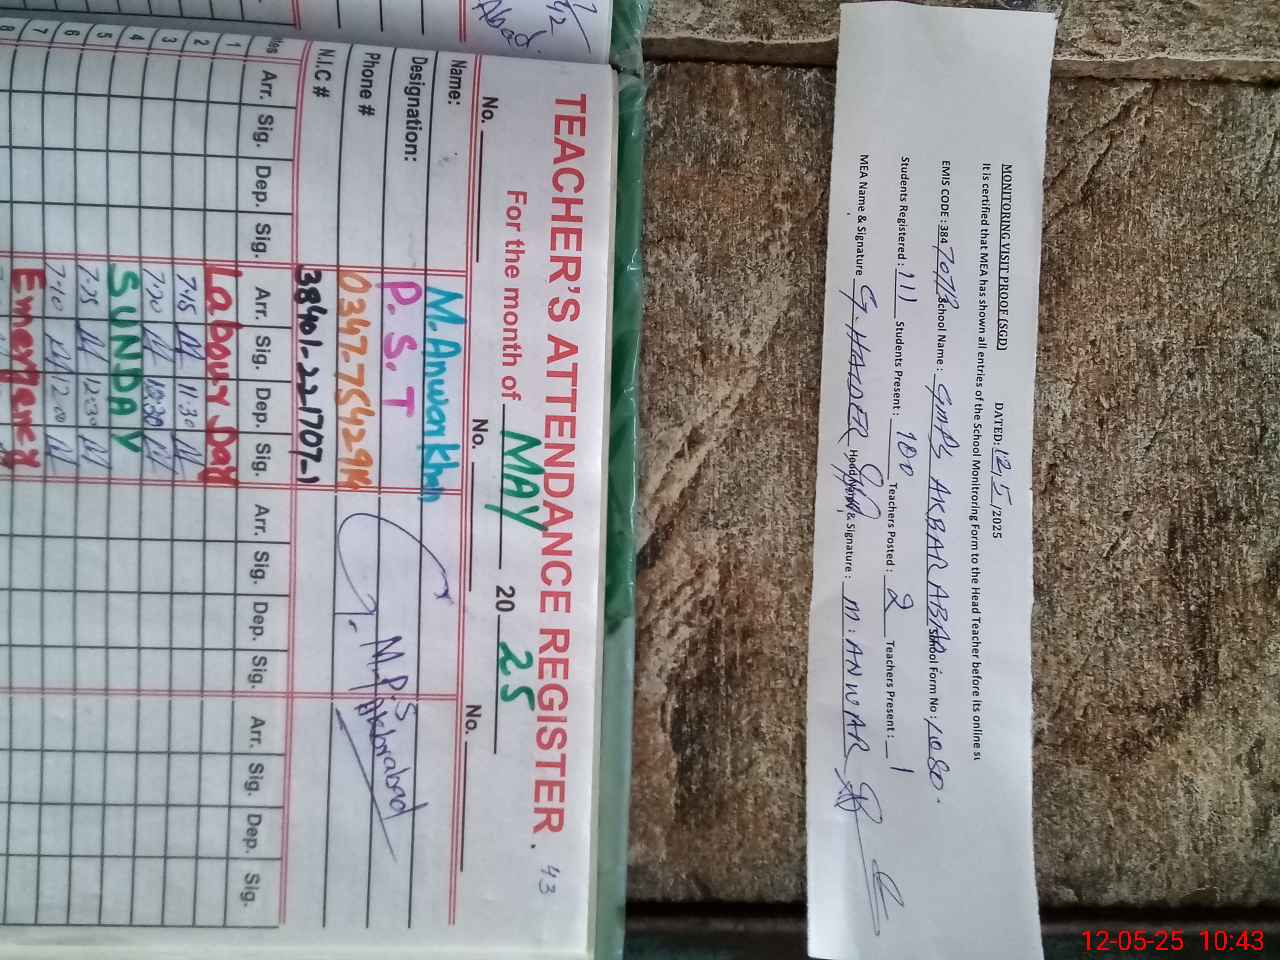 TEACHER'S ATTENDANCE REGISTER.
43
For the month of MAY 20 25
No. No. No.
Name: M.Anwar Khan
Designation: P.S.T
Phone #
N.I.C # 38401-221707-1
G.M.P.S
Akbarabad
Arr. Sig. Dep. Sig. Arr. Sig. Dep. Sig. Arr. Sig. Dep. Sig. Arr. Sig. Dep. Sig.
1 Labour Day
2 7:15 11:30
3 7:20
4 SUNDAY
5 7:25 12:30
6 7:10 12:00
7 Emergency
8
MONITORING VISIT PROOF (SGD) DATED: 12/5/2025
It is certified that MEA has shown all entries of the School Monitroring Form to the Head Teacher before its online
EMIS CODE : 384 School Name : GMPS AKBAR ABAD School Form No :
Students Registered : 111 Students Present : 100 Teachers Posted : 2 Teachers Present : 1
MEA Name & Signature G. HAIDER Head Name & Signature : M. ANWAR
12-05-25 10:43